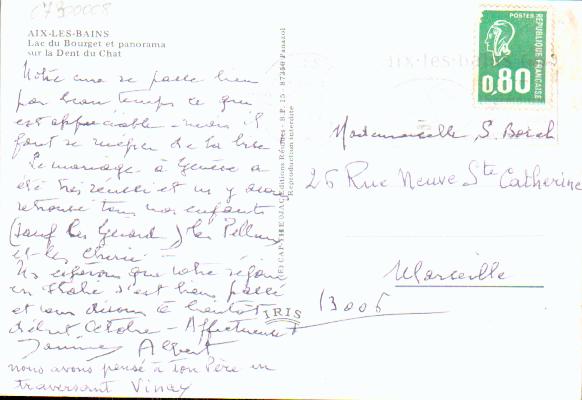 C7300008
AIX-LES-BAINS
Lac du Bourget et panorama
sur la Dent du Chat
Notre cure se passe bien
par beau temps ce qui
est appréciable - mais il
faut se méfier de la
Le mariage à Genève a
été très réussi et on y a
retrouvé tous nos enfants
(sauf les Gérard) les
et les
Ns espérons que votre séjour
en Italie s'est bien passé
et vous disons à bientôt
début Octobre - Affectueux
Albert
nous avons pensé à ton Père en
traversant Vinay
Editions Réunies - B.P. 15 - 87350 Panazol
Reproduction interdite
IRIS
POSTES
0,80
REPUBLIQUE FRANCAISE
aix-les-bains
Mademoiselle S.
26 Rue Neuve Ste Catherine
Marseille
13006